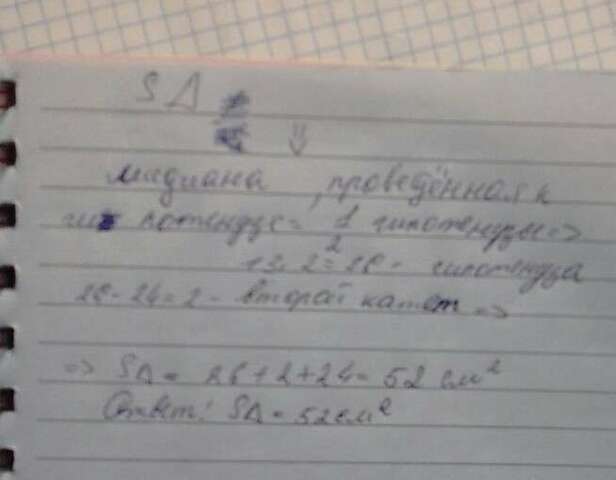 S∆
⇓
медиана, проведённая к
гипотенузе = 1/2 гипотенузы =>
13 · 2 = 26 - гипотенуза
26 - 24 = 2 - второй катет =>
=> S∆ = 26 + 2 + 24 = 52 см²
Ответ: S∆ = 52 см²